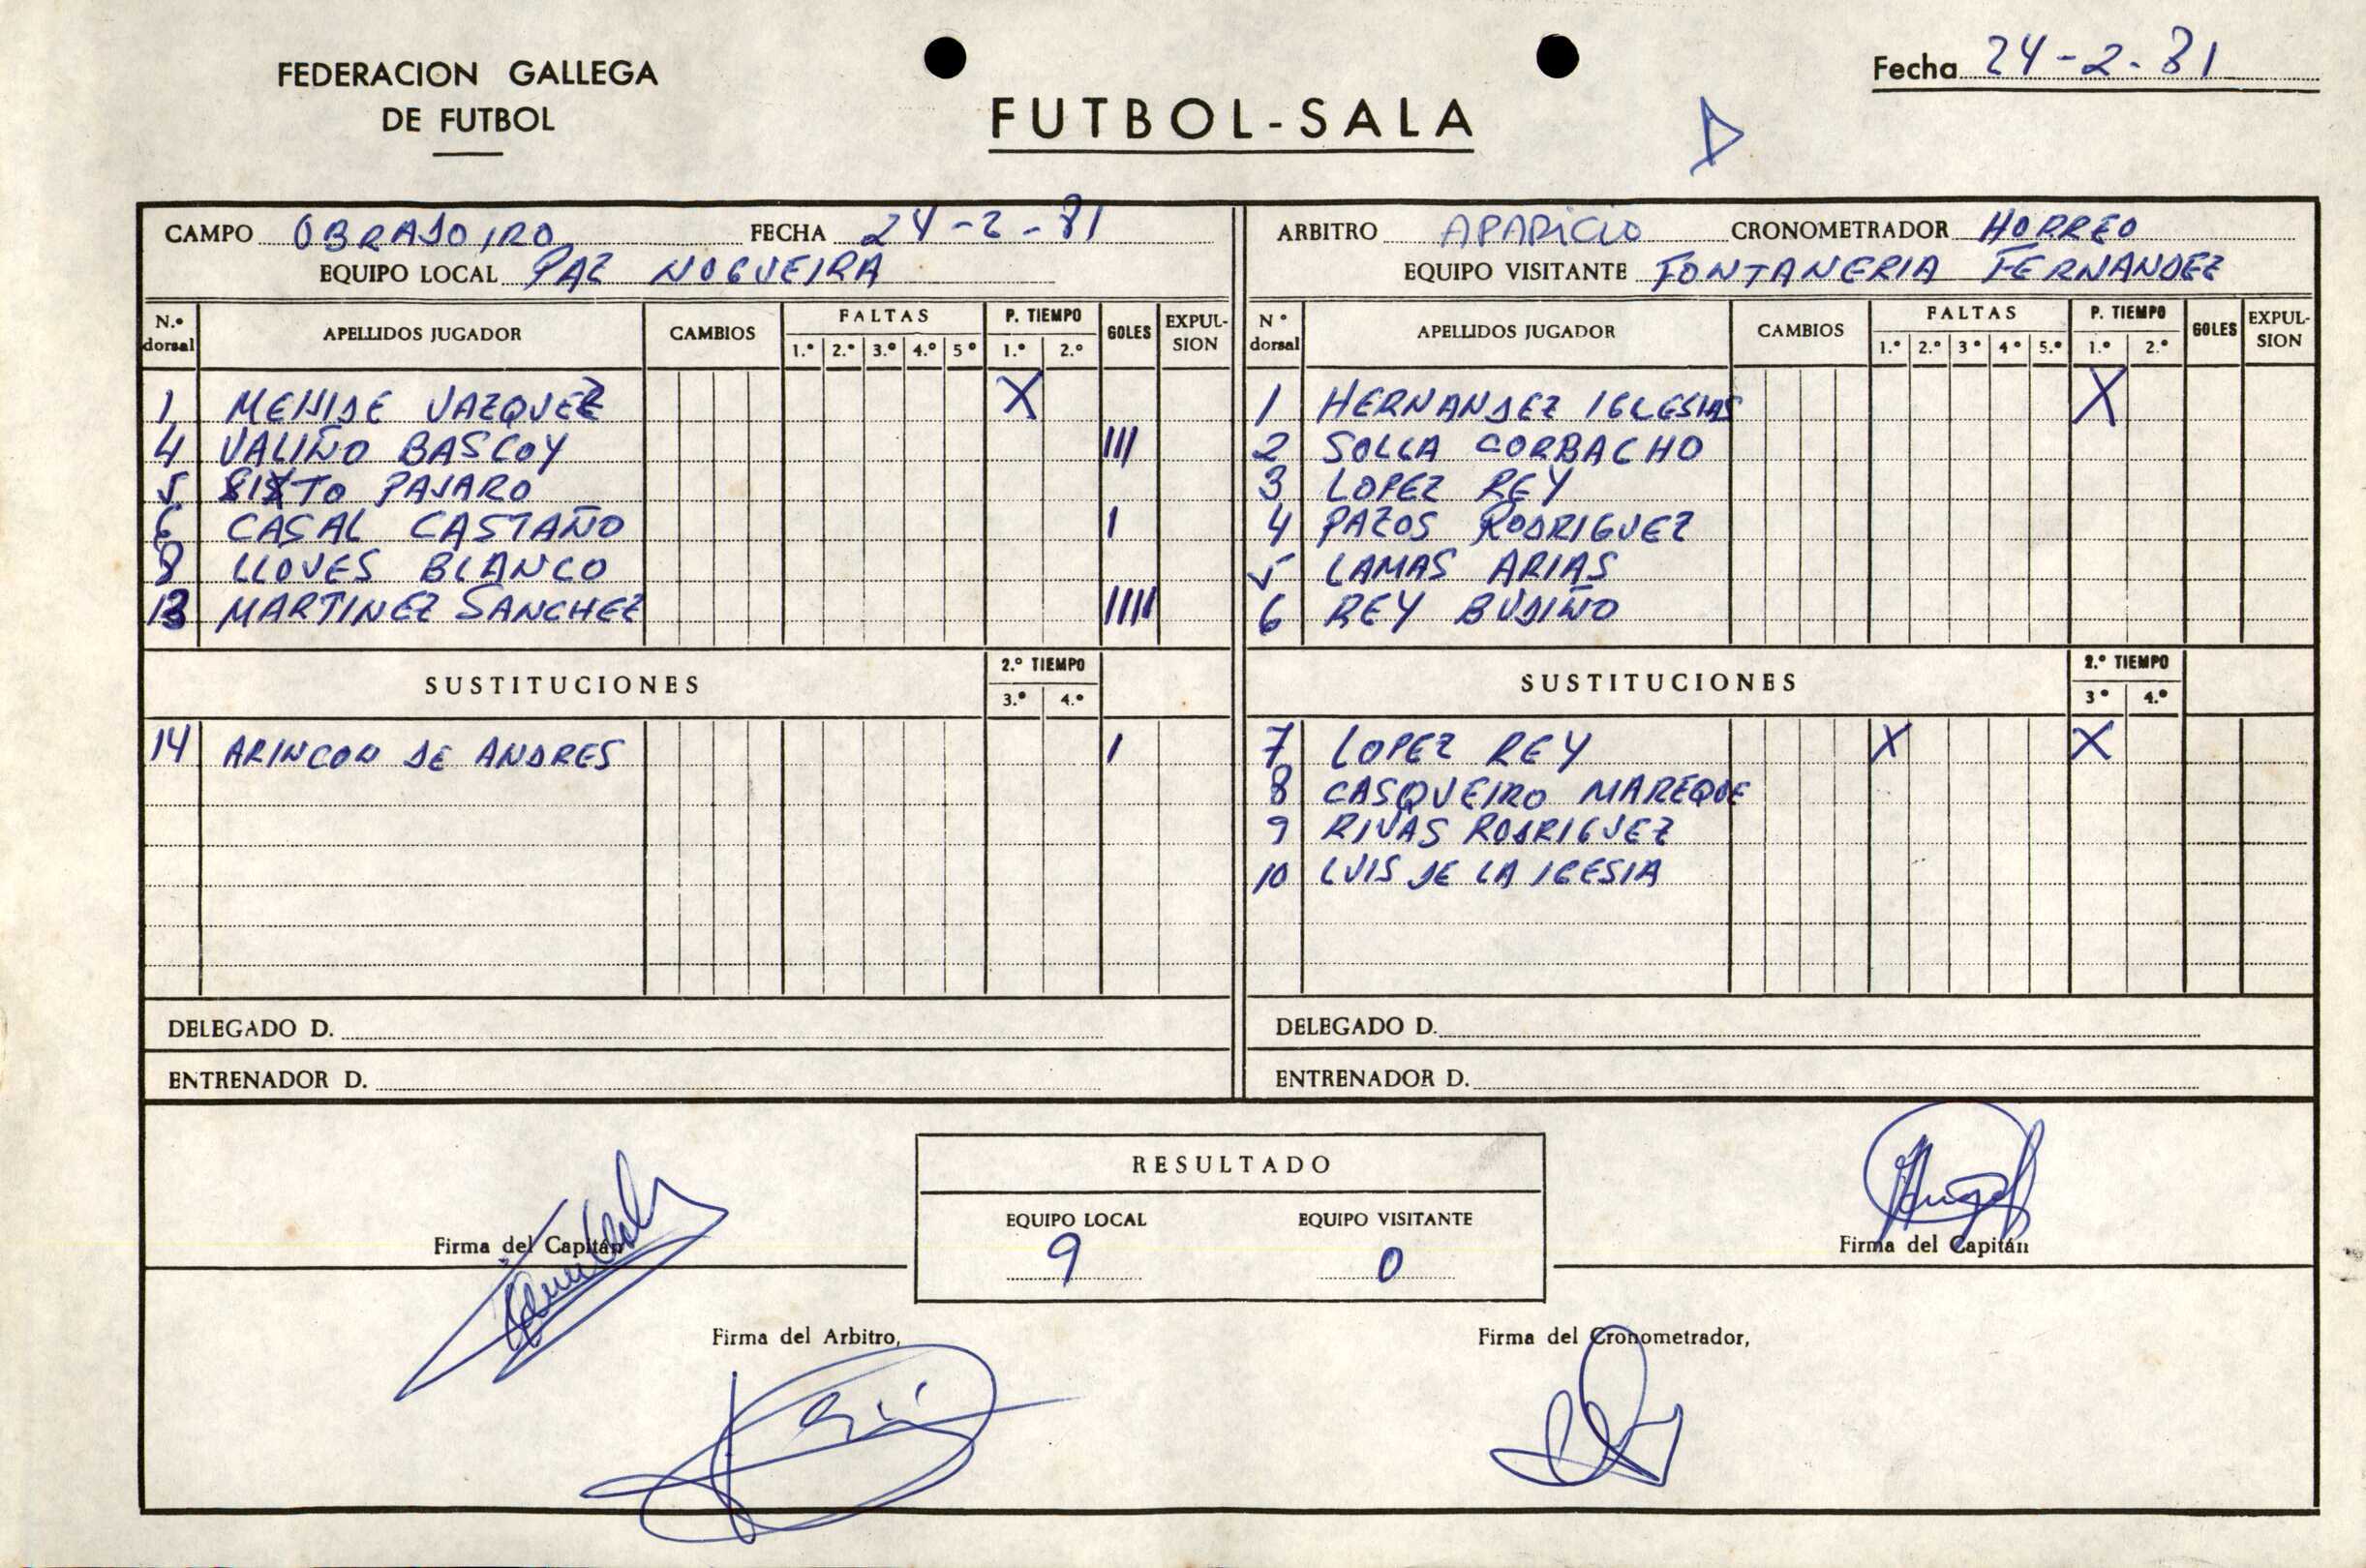 FEDERACION GALLEGA
DE FUTBOL
FUTBOL-SALA
Fecha 24-2-81
CAMPO OBRADOIRO FECHA 24-2-81
EQUIPO LOCAL PAZ NOGUEIRA
N.º dorsal APELLIDOS JUGADOR CAMBIOS FALTAS 1.º 2.º 3.º 4.º 5º P. TIEMPO 1.º 2.º GOLES EXPULSION
1 MENIDE VAZQUEZ X
4 VALIÑO BASCOY III
5 SIXTO PAJARO
6 CASAL CASTAÑO I
8 LLOVES BLANCO
13 MARTINEZ SANCHEZ IIII
SUSTITUCIONES 2.º TIEMPO 3.º 4.º
14 ARINCON DE ANDRES I
DELEGADO D.
ENTRENADOR D.
ARBITRO APARICIO CRONOMETRADOR HORREO
EQUIPO VISITANTE FONTANERIA FERNANDEZ
Nº dorsal APELLIDOS JUGADOR CAMBIOS FALTAS 1.º 2.º 3º 4º 5.º P. TIEMPO 1.º 2.º GOLES EXPULSION
1 HERNANDEZ IGLESIAS X
2 SOLLA CORBACHO
3 LOPEZ REY
4 PAZOS RODRIGUEZ
5 LAMAS ARIAS
6 REY BUDIÑO
SUSTITUCIONES 2.º TIEMPO 3º 4.º
7 LOPEZ REY X X
8 CASQUEIRO MAREQUE
9 RIVAS RODRIGUEZ
10 LUIS DE LA IGESIA
DELEGADO D.
ENTRENADOR D.
RESULTADO
EQUIPO LOCAL EQUIPO VISITANTE
9 0
Firma del Capitán
Firma del Capitán
Firma del Arbitro,
Firma del Cronometrador,